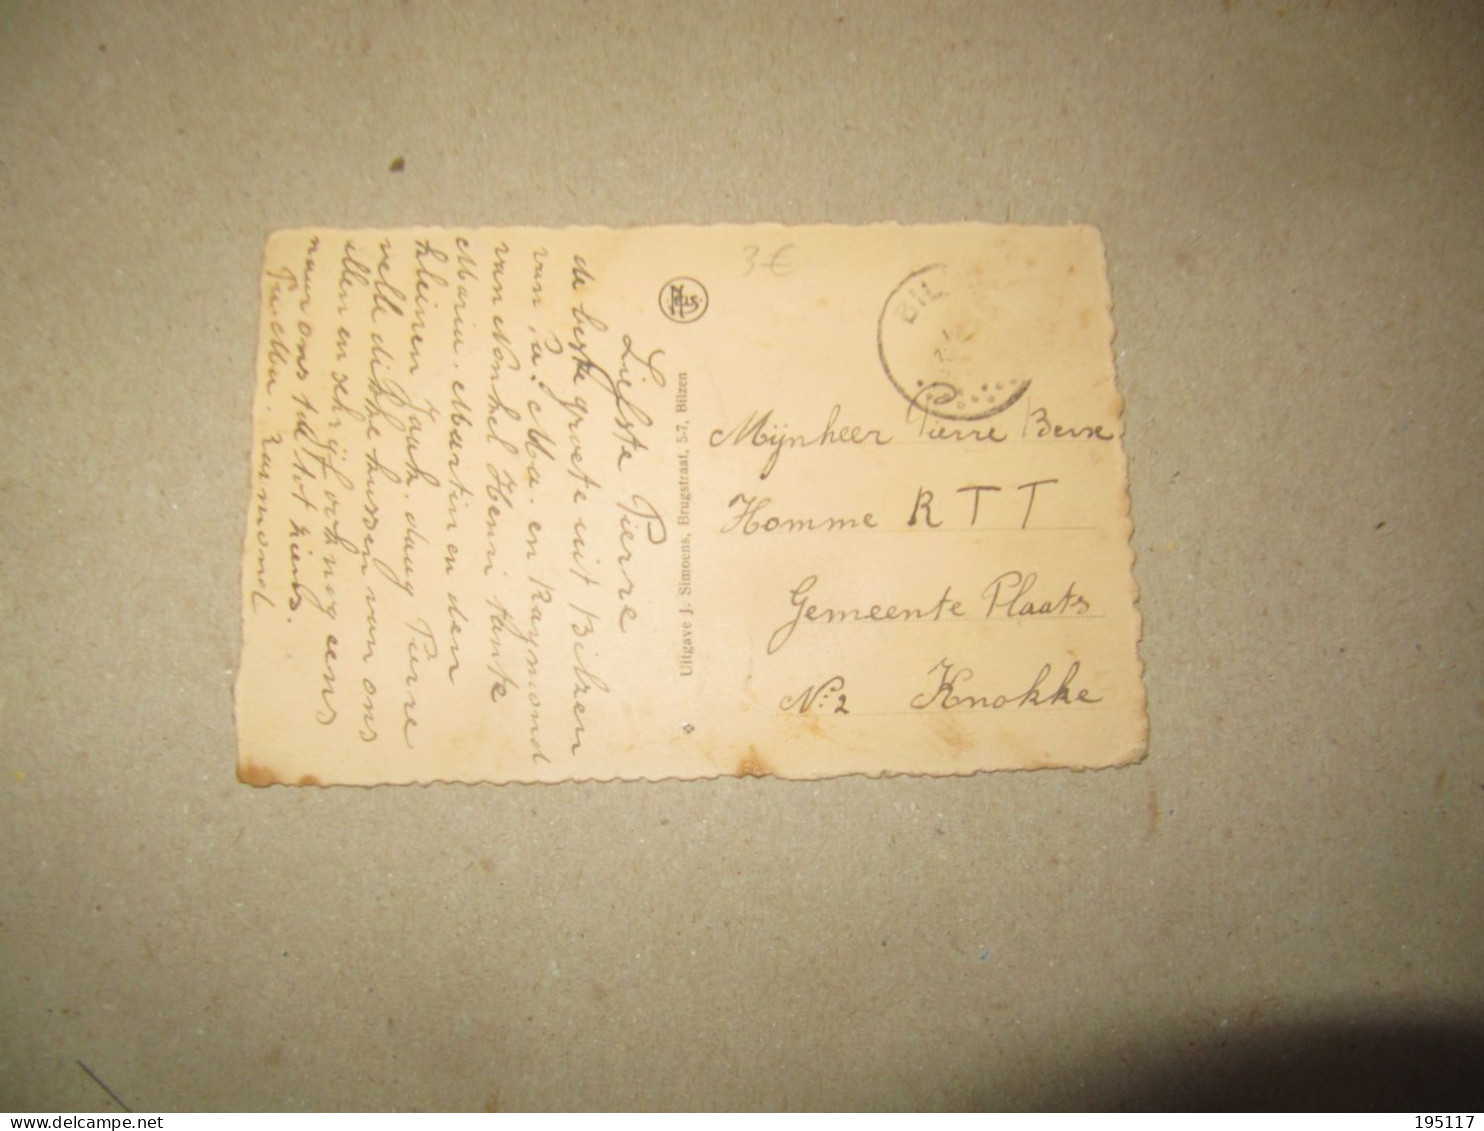 Liefste Pierre
de beste groete uit Bilzen
van Pa. Ma. en Raymond
van Nonkel Henri tante
Maria. Martin en den
kleinen Jaak. daag Pierre
velle dikke kussen van ons
allen en schrijf ook nog eens
naar ons tad tot ziens.
Pa en Ma. Raymond
NELS
Uitgave J. Simoens, Brugstraat, 5-7, Bilzen
3€
BIL
Mijnheer Pierre
Homme RTT
Gemeente Plaats
N:2 Knokke
195117